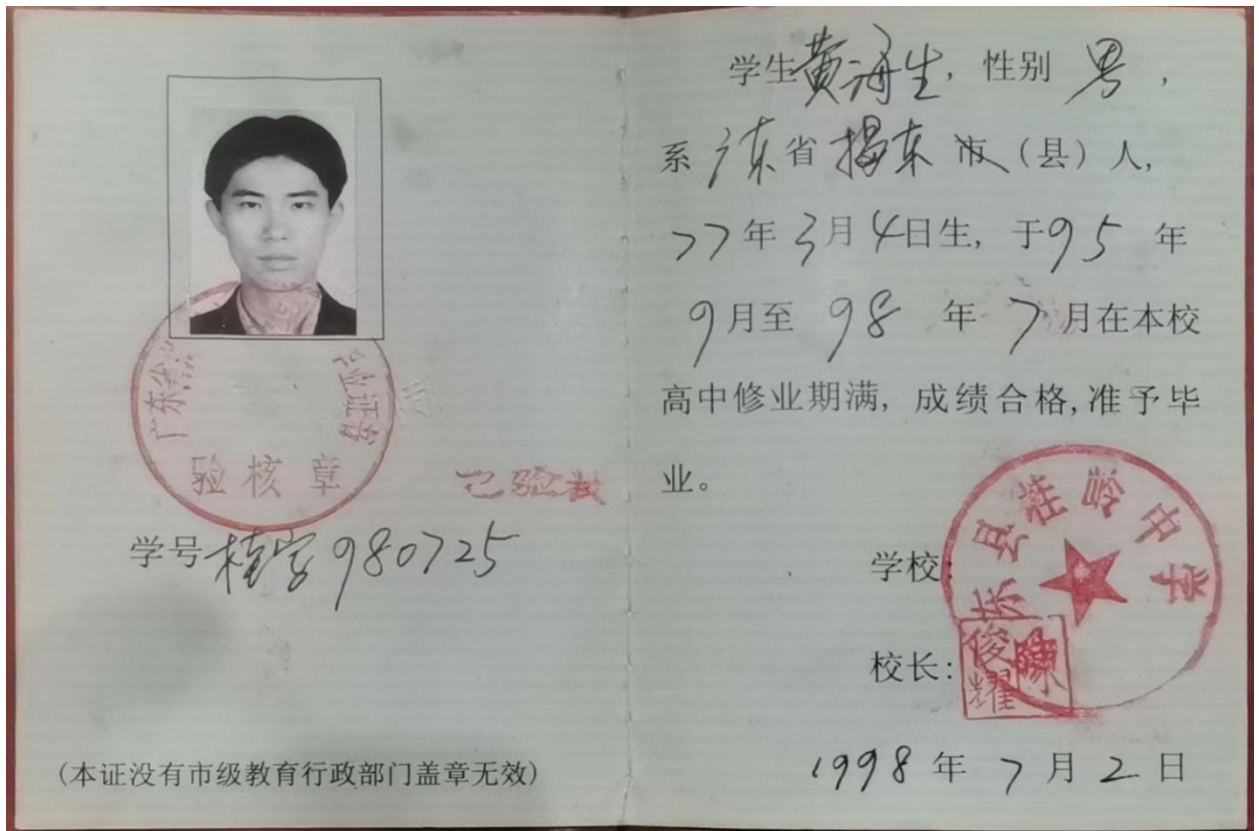 广东省
毕业证书
验核章
已验
学号桂字980725
(本证没有市级教育行政部门盖章无效)
学生黄海生，性别 男，
系 广东省揭东市（县）人，
77年3月4日生，于95年
9月至98年7月在本校
高中修业期满，成绩合格，准予毕
业。
学校：
东县桂岭中学
校长：
陈俊耀
1998年7月2日